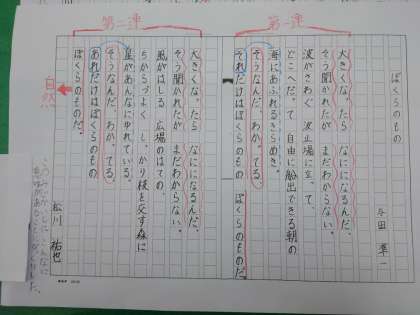 第一連
第二連
ぼくらのもの
与田 準一
大きくなったら なにになるんだ、
そう聞かれたが まだわからない。
波がさわぐ 波止場に立って、
どこへだって 自由に船出できる朝の
海にあふれるきらめき、
そうなんだ、わかってる、
それだけはぼくらのもの ぼくらのものだ。
大きくなったら なにになるんだ、
そう聞かれたが まだわからない。
風がはしる 広場のはての、
ちからづよく しっかり枝を交す森に
星があんなにゆれている、
そうなんだ、わかってる、
あれだけはぼくらのもの
ぼくらのものだ。
自然